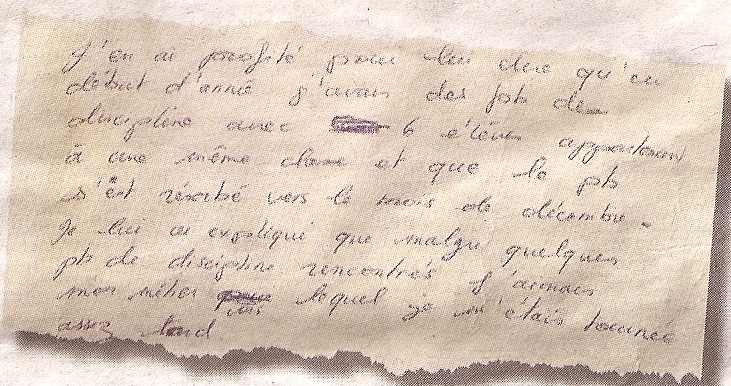 J'en ai profité pour leu dire qu'en
début d'année j'avais des pb de
discipline avec 6 élèves appartenant
à une même classe et que le pb
s'est résorbé vers le mois de décembre.
Je lui ai expliqué que malgré quelques
pb de discipline rencontrés j'aimais
mon métier vers lequel je m'étais tournée
assez tard